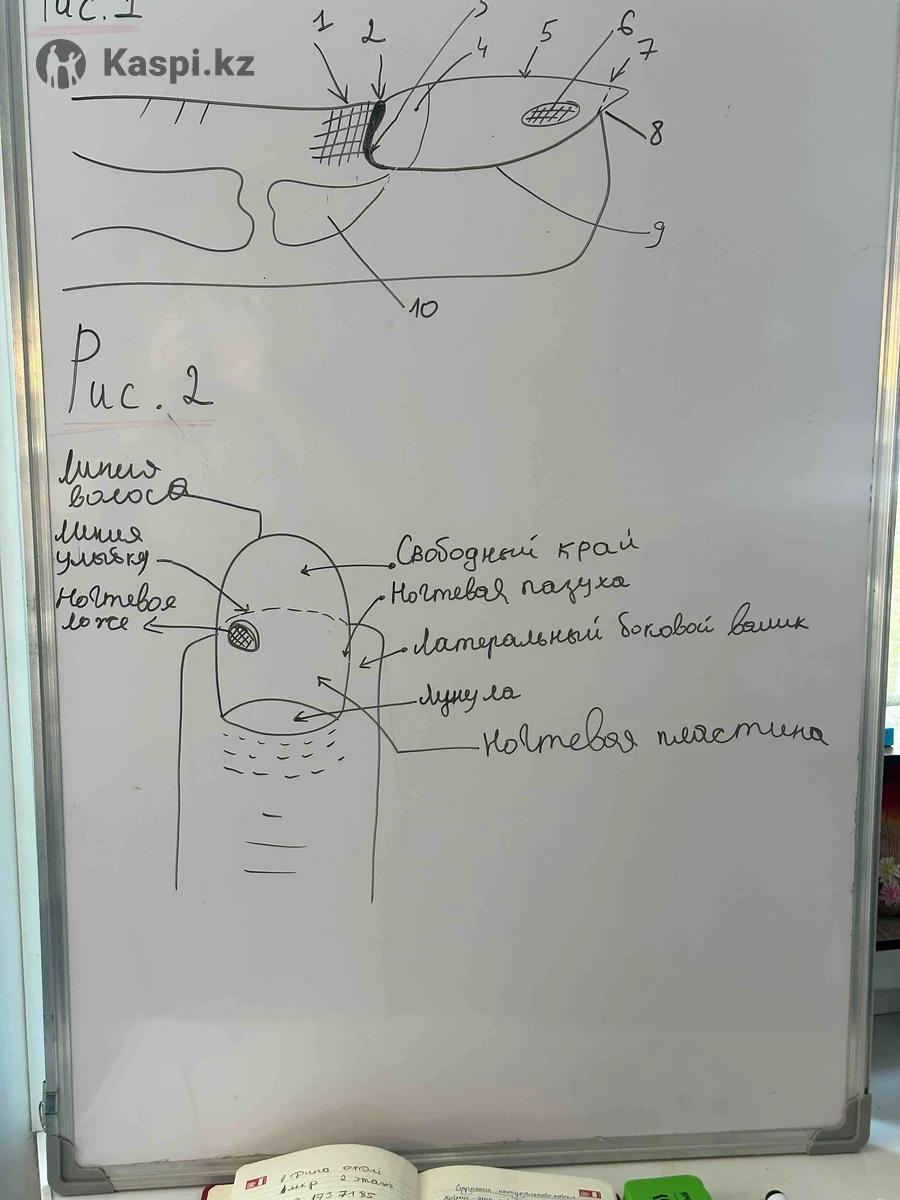 Рис. 1
Kaspi.kz
1
2
3
4
5
6
7
8
9
10
Рис. 2
Линия
волоса
Линия
улыбку
Ногтевое
ложе
Свободный край
Ногтевая пазуха
Латеральный боковой валик
Лунула
Ногтевая пластина
2 этаж